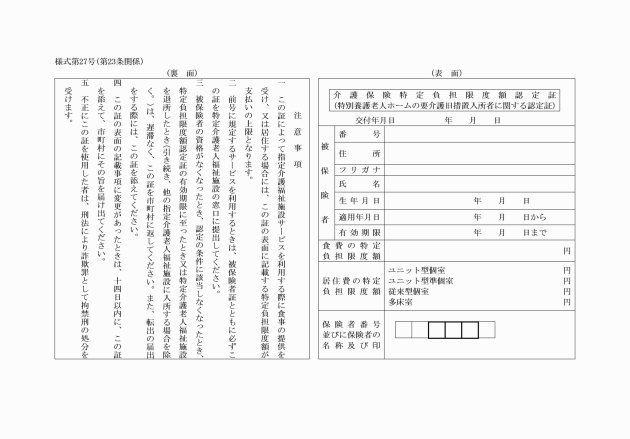 様式第27号(第23条関係)
（裏　面）
注　意　事　項
一　この証によって指定介護福祉施設サービスを利用する際に食事の提供を
受け、又は居住する場合には、この証の表面に記載する特定負担限度額が
支払いの上限となります。
二　前号に規定するサービスを利用するときは、被保険者証とともに必ずこ
の証を特定介護老人福祉施設の窓口に提出してください。
三　被保険者の資格がなくなったとき、認定の条件に該当しなくなったとき、
特定負担限度額認定証の有効期限に至ったとき又は特定介護老人福祉施設
を退所したとき（引き続き、他の指定介護老人福祉施設に入所する場合を除
く。）は、遅滞なく、この証を市町村に返してください。また、転出の届出
をする際には、この証を添えてください。
四　この証の表面の記載事項に変更があったときは、十四日以内に、この証
を添えて、市町村にその旨を届け出てください。
五　不正にこの証を使用した者は、刑法により詐欺罪として拘禁刑の処分を
受けます。
（表　面）
介護保険特定負担限度額認定証
(特別養護老人ホームの要介護旧措置入所者に関する認定証)
交付年月日　年　月　日
被保険者
番　号
住　所
フリガナ
氏　名
生年月日　年　月　日
適用年月日　年　月　日から
有効期限　年　月　日まで
食費の特定
負担限度額　円
居住費の特定
負担限度額
ユニット型個室　円
ユニット型準個室　円
従来型個室　円
多床室　円
保険者番号
並びに保険者の
名称及び印